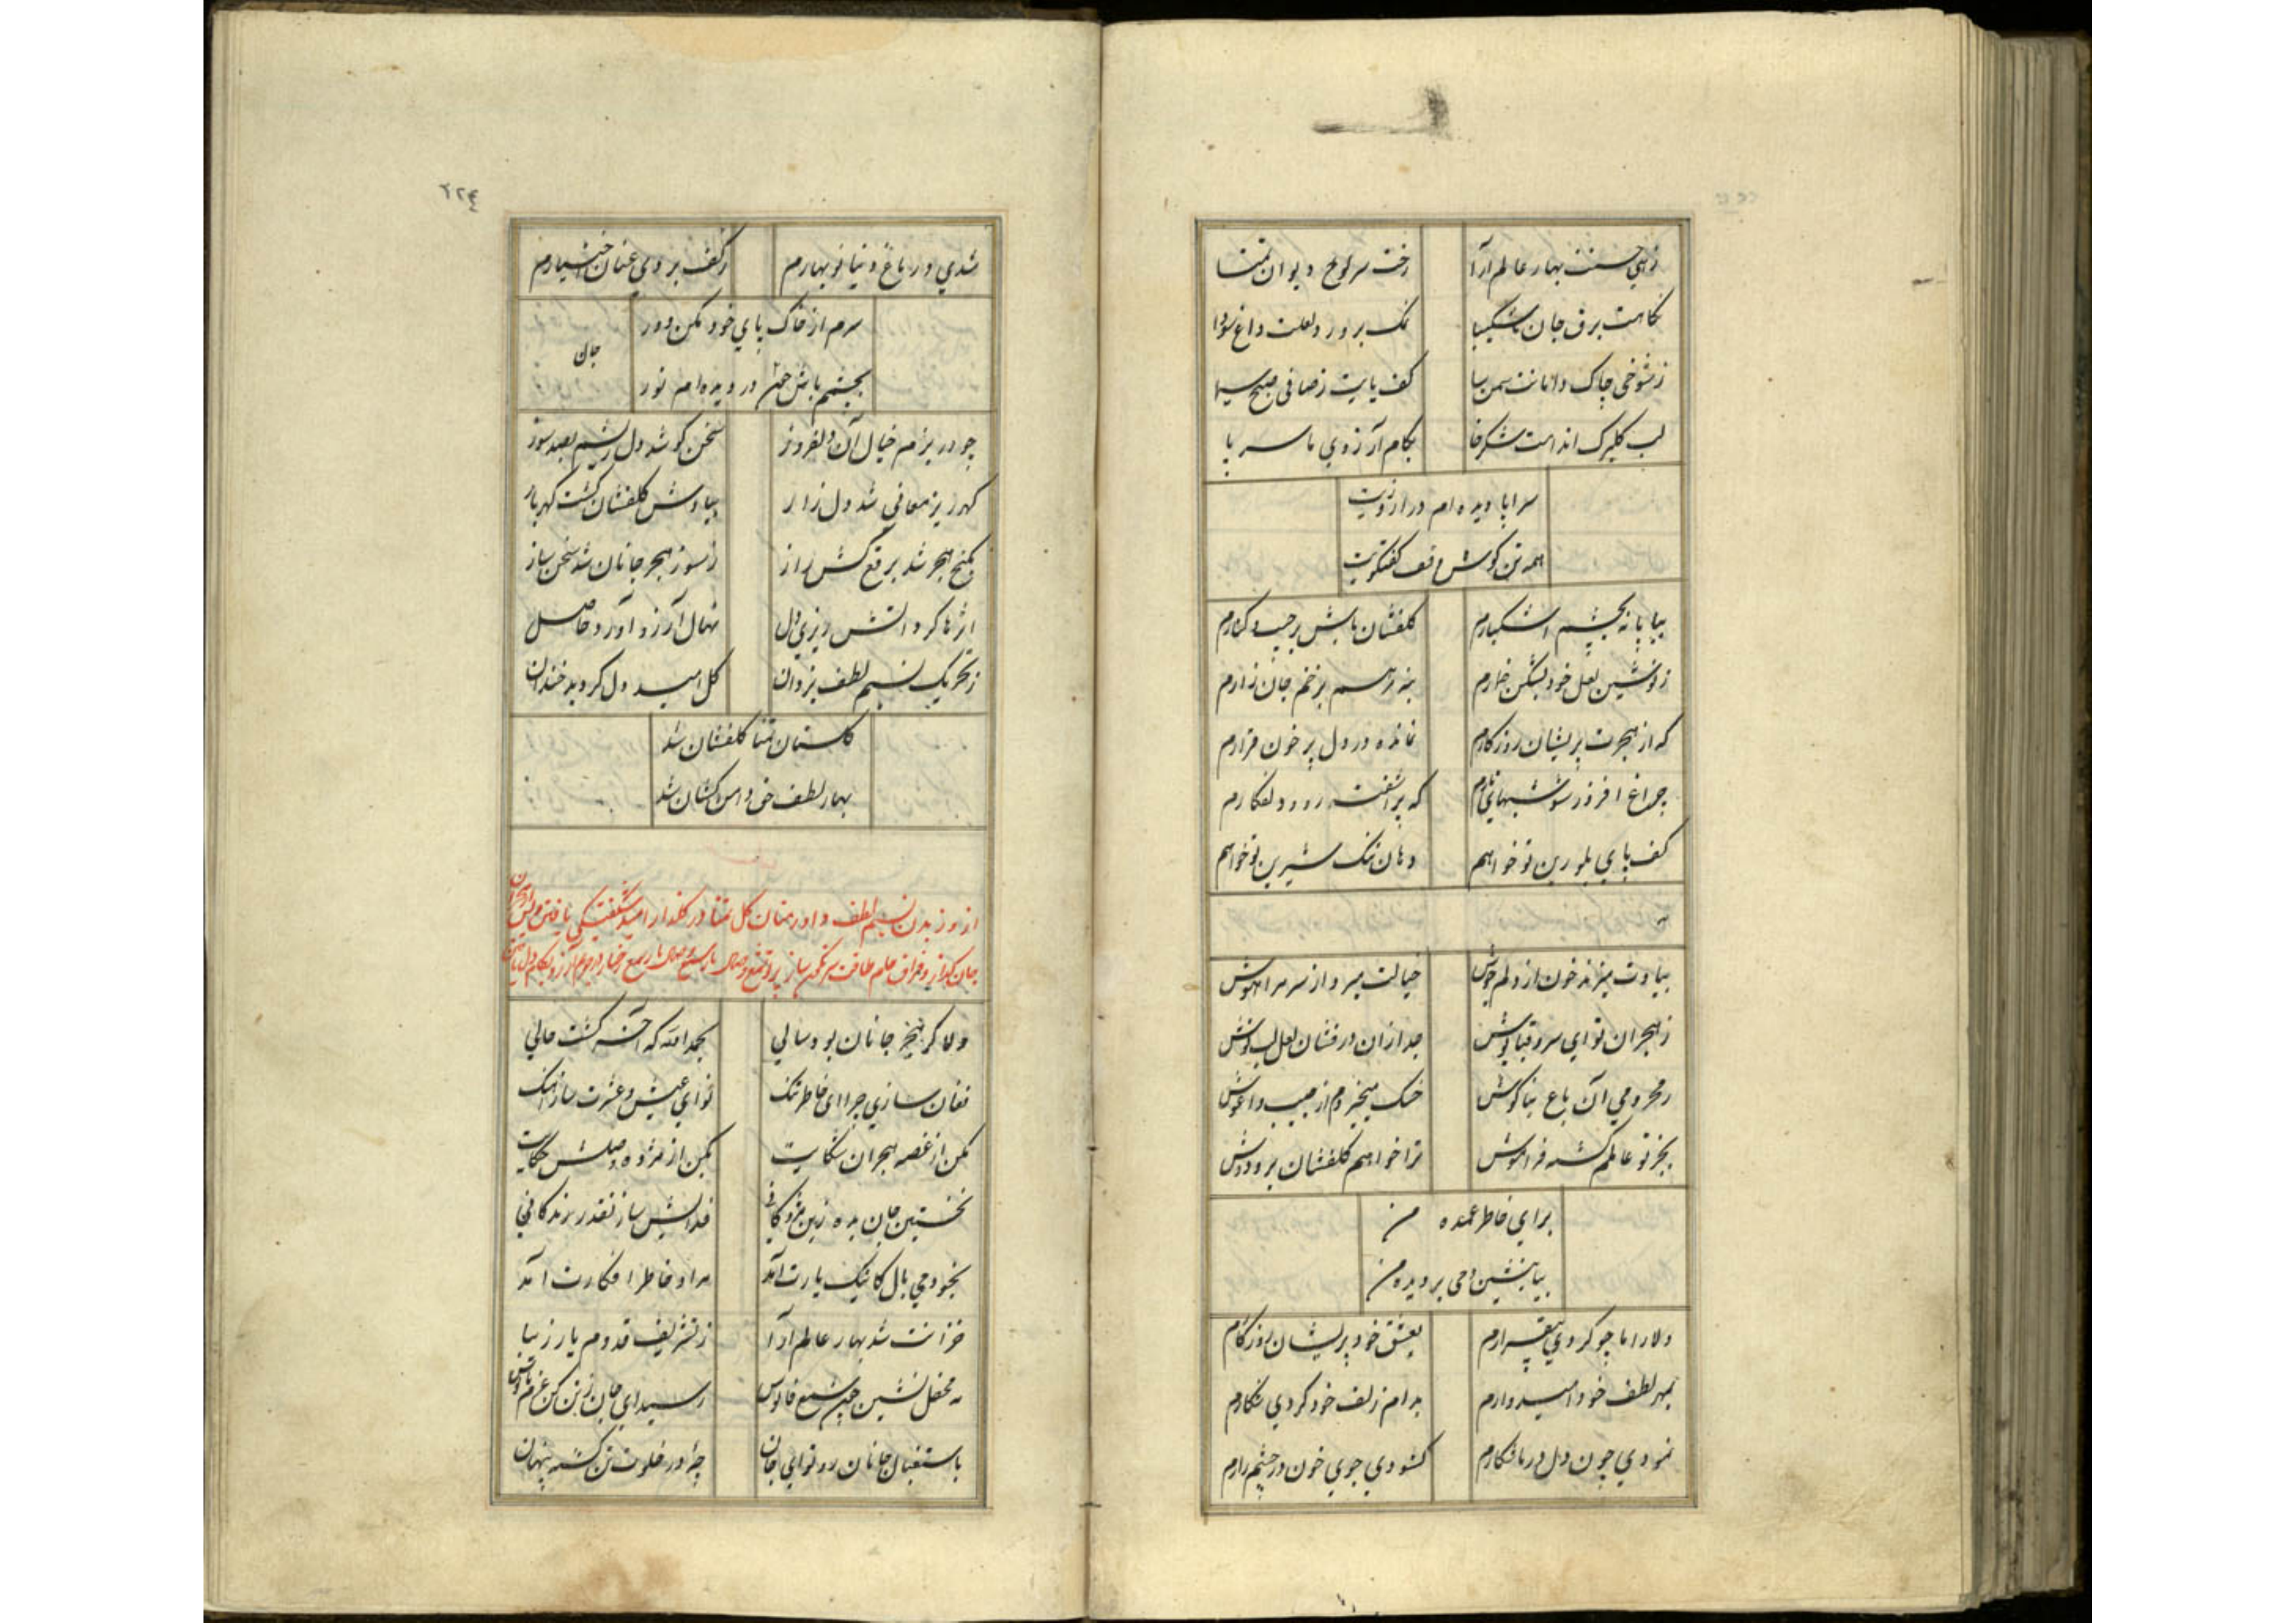 زهی حسنت بهار عالم آرا رخت سر لوح دیوان تمنا
نگاهت برق جان ناشکیبا نمک پرور ز لعلت داغ سودا
ز شوخی چاک دامانت سمن سا کف پایت ز صافی صبح سیما
لب گلبرگ اندامت شکرخا بکام آرزوی ما سرپا
سراپا دیده ام در آرزویت
همه تن گوش وقف گفتگویت
بیا پا نه بچشم اشکبارم گلفشان باش بر جیب و کنارم
ز نوشین لعل خود بشکن خمارم بنه مرهم بزخم جان زارم
که از هجرت پریشان روزگارم نمانده در دل پر خون قرارم
چراغ افروز شو شبهای تارم که بر آشفت دلفگارم
کف پای بلورین تو خواهم دهان تنگ شیرین تو خواهم
بیادت میزند خون از دلم جوش خیالت میبرد از سر مرا هوش
ز هجران تو ای سرو قباپوش جدا زان درفشان لعل لب نوش
ز محرومی آن باغ بناگوش خسک میخیزدم از جیب و آغوش
بجز تو عالمم گشته فراموش ترا خواهم گلفشان بر و دوش
برای خاطر غمدیده من
بیا بنشین دمی بر دیده من
دلاراما چو کردی بیقرارم بعشق خود پریشان روزگارم
بمهر لطف خود امیدوارم بدام زلف خود کردی شکارم
نمودی چون دل درمان فگارم گشودی جوی خون در چشم زارم
۲۲۴
شدی در باغ دنیا نوبهارم ز کف بردی عنان اختیارم
سرم از خاک پای خود مکن دور
جان
بچشمم باش در دیده ام نور
چو در بزم خیال آن دلفروز سخن گو شد دل ریشم بصد سوز
گهرریز معانی شد دل زار بیادش گلفشان گشت گهربار
بکنج هجر شد برقع کش راز ز سوز هجر جانان شد سخن ساز
اثرها کرد آتش ریزی دل نهال آرزو آورد حاصل
ز تحریک نسیم لطف یزدان گل امید دل گردید خندان
گلستان تمنا گلفشان شد
بهار لطف حق دامن کشان شد
از وزیدن نسیم لطف داور منان گل تمنا در گلزار امید شگفتگی یافتن
جان گداز و فراق
دلا گر هجر جانان بود سالی بحمدالله که آخر گشت حالی
فغان سازی چرا ای خاطر تنگ نوای عیش و عشرت ساز آهنگ
مکن از غصه هجران شکایت بکن از مژده وصلش حکایت
نخستین جان بده زین مژدگانی فدایش ساز نقد زندگانی
بخود می بال کاینک یارت آمد مراد خاطر افگارت آمد
خزانت شد بهار عالم آرا ز تشریف قدوم یار زیبا
مه محفل نشین چون شمع فانوس رسید ای جان ز تن کن عزم پابوس
باستقبال جانان رو تو ای جان چرا در خلوت تن گشته پنهان